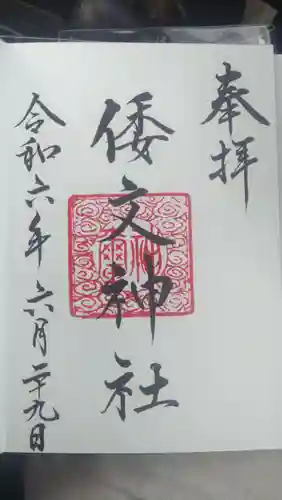 奉拝
倭文神社
令和六年六月二十九日